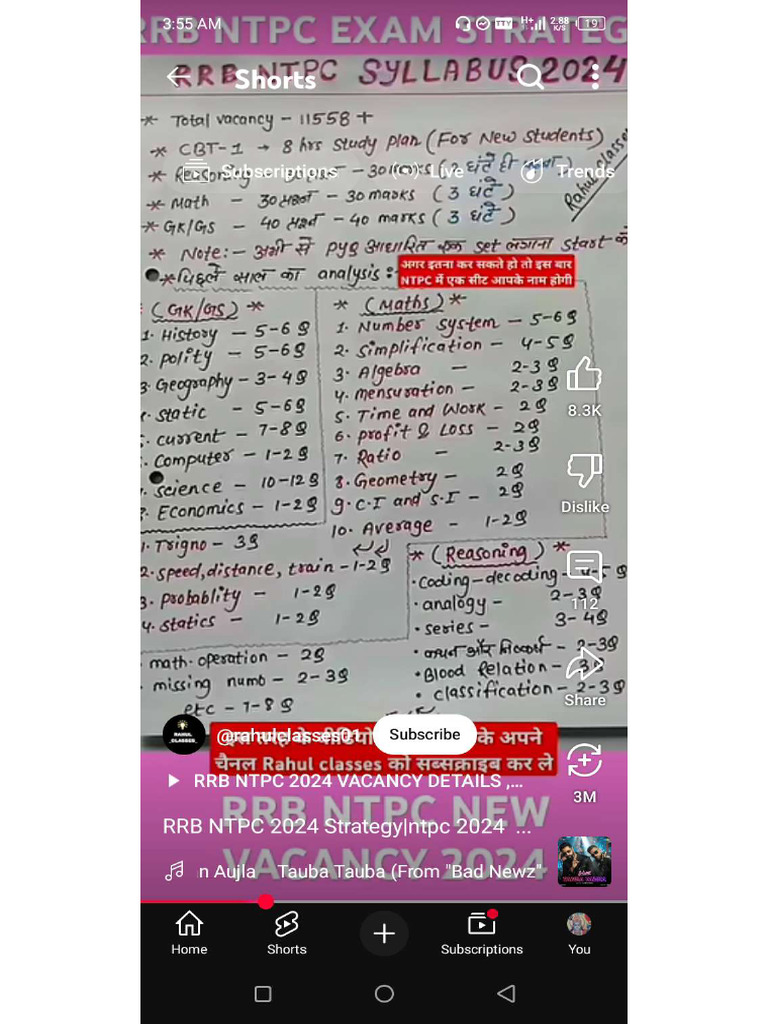 3:55 AM
H+
2.88
K/S
19
RRB NTPC EXAM STRATEG
RRB NTPC SYLLABUS 2024
Shorts
* Total vacancy - 11558 +
* CBT-1 → 8 hrs Study plan (For New Students)
Subscriptions
Live
Trends
* Reasoning - 30 marks (2 घंटे
Rahul classes
* Math - 30 प्रश्न - 30 marks (3 घंटे)
* GK/GS - 40 प्रश्न - 40 marks (3 घंटे)
* Note:- अभी से PYQ आधारित एक set लगाना start
अगर इतना कर सकते हो तो इस बार
NTPC में एक सीट आपके नाम होगी
* पिछले साल का analysis:
(GK/GS) *
1. History - 5-6 Q
2. polity - 5-6Q
3. Geography - 3-4Q
. static - 5-6Q
. current - 7-8Q
. Computer - 1-2 Q
. science - 10-12Q
. Economics - 1-2Q
* (Maths) *
1. Number system - 5-6Q
2. Simplification - 4-5Q
3. Algebra - 2-3Q
4. mensuration - 2-3Q
5. Time and Work - 2Q
6. profit & Loss - 2Q
7. Ratio - 2-3Q
8. Geometry - 2Q
9. C.I and S.I - 2Q
10. Average - 1-2Q
1. Trigno - 3Q
2. speed, distance, train - 1-2Q
3. Probablity - 1-2Q
4. statics - 1-2Q
math. operation - 2Q
missing numb - 2-3Q
etc - 7-8Q
* (Reasoning) *
• coding-decoding - 4-5 Q
• analogy - 2-3Q
• series - 3-4Q
• कथन और निष्कर्ष - 2-3Q
• Blood Relation - 3Q
• classification - 2-3Q
8.3K
Dislike
112
Share
3M
RAHUL
CLASSES
@rahulclasses01
Subscribe
के अपने
चैनल Rahul classes को सब्सक्राइब कर ले
RRB NTPC 2024 VACANCY DETAILS ,...
RRB NTPC NEW
RRB NTPC 2024 Strategy|ntpc 2024 ...
VACANCY 2024
n Aujla Tauba Tauba (From "Bad Newz"
Home
Shorts
Subscriptions
You